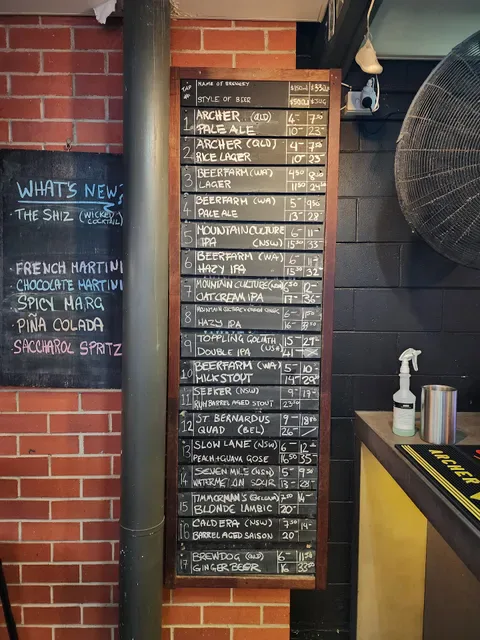 WHAT'S NEW?
• THE SHIZ (WICKED COCKTAIL)
• FRENCH MARTINI
CHOCOLATE MARTINI
SPICY MARG
• PIÑA COLADA
SACCHAROL SPRITZ
TAP # NAME OF BREWERY
STYLE OF BEER
1 ARCHER (QLD) 4-
PALE ALE 10- 23-
2 ARCHER (QLD) 4-
RICE LAGER 10- 23-
3 BEERFARM (WA) 4.50
LAGER
4 BEERFARM (WA) 5
PALE ALE 13- 28
5 MOUNTAIN CULTURE 6- 11-
IPA (NSW) 15.50 33
6 BEERFARM (WA) 6 11-
HAZY IPA 15.50 32-
7 MOUNTAIN CULTURE 12-
OATCREAM IPA 17- 36-
8 MOUNTAIN CULTURE 6-
HAZY IPA 16-
9 TOPPLING GOLIATH 15- 29-
DOUBLE IPA (USA) 41-
10 BEERFARM (WA) 5- 10-
MILK STOUT 14- 29-
11 SEEKER (NSW) 9- 17-
RUM BARREL AGED STOUT
12 ST BERNARDUS 9-
QUAD (BEL) 26-
13 SLOW LANE (NSW) 6-
PEACH + GUAVA GOSE 16.50 35-
14 SEVEN MILE (NSW) 5-
SOUR 13-
15 TIMMERMAN'S 14-
BLONDE LAMBIC 20-
16 CALDERA (NSW) 7.50 14-
BARREL AGED SAISON 20
17 BREWDOG (QLD) 6-
GINGER BEER 16
ARCHER